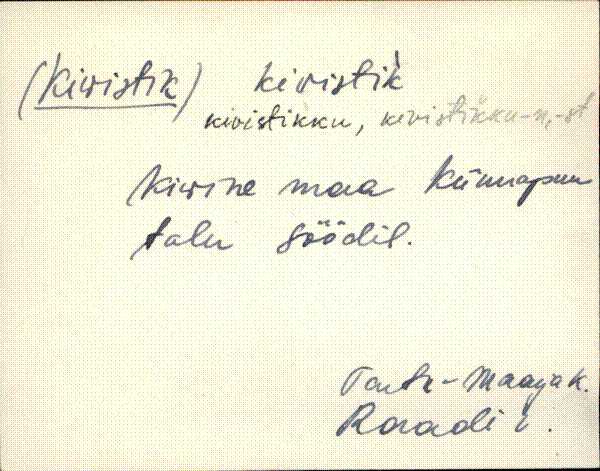 (Kivistik) kivistik̀
kivistikku, kivistikku-n,-st
kivine maa Künnapuu
talu söödil.
Tartu-Maarja k.
Raadi v.